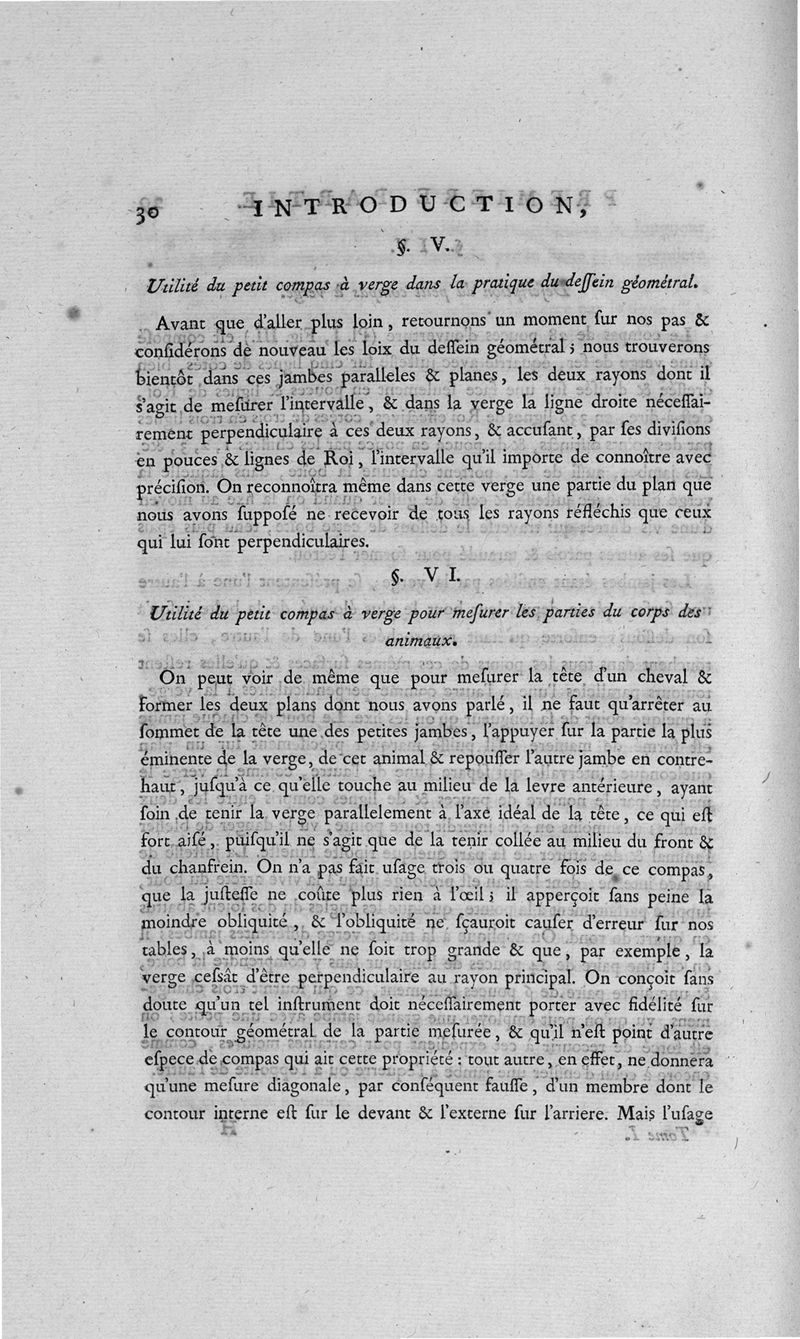 30 INTRODUCTION,
§. V.
Utilité du petit compas à verge dans la pratique du deſſein géométral.
Avant que d'aller plus loin, retournons un moment ſur nos pas &
conſidérons de nouveau les loix du deſſein géométral ; nous trouverons
bientôt dans ces jambes paralleles & planes, les deux rayons dont il
s'agit de meſurer l'intervalle, & dans la verge la ligne droite néceſſai-
rement perpendiculaire à ces deux rayons, & accuſant, par ſes diviſions
en pouces & lignes de Roi, l'intervalle qu'il importe de connoître avec
préciſion. On reconnoîtra même dans cette verge une partie du plan que
nous avons ſuppoſé ne recevoir de tous les rayons réfléchis que ceux
qui lui ſont perpendiculaires.
§. VI.
Utilité du petit compas à verge pour meſurer les parties du corps des
animaux.
On peut voir de même que pour meſurer la tête d'un cheval &
former les deux plans dont nous avons parlé, il ne faut qu'arrêter au
ſommet de la tête une des petites jambes, l'appuyer ſur la partie la plus
éminente de la verge, de cet animal & repouſſer l'autre jambe en contre-
haut, juſqu'à ce qu'elle touche au milieu de la levre antérieure, ayant
ſoin de tenir la verge parallelement à l'axe idéal de la tête, ce qui eſt
fort aiſé, puiſqu'il ne s'agit que de la tenir collée au milieu du front &
du chanfrein. On n'a pas fait uſage trois ou quatre fois de ce compas,
que la juſteſſe ne coûte plus rien à l'œil ; il apperçoit ſans peine la
moindre obliquité, & l'obliquité ne ſçauroit cauſer d'erreur ſur nos
tables, à moins qu'elle ne ſoit trop grande & que, par exemple, la
verge ceſsât d'être perpendiculaire au rayon principal. On conçoit ſans
doute qu'un tel inſtrument doit néceſſairement porter avec fidélité ſur
le contour géométral de la partie meſurée, & qu'il n'eſt point d'autre
eſpece de compas qui ait cette propriété : tout autre, en effet, ne donnera
qu'une meſure diagonale, par conſéquent fauſſe, d'un membre dont le
contour interne eſt ſur le devant & l'externe ſur l'arriere. Mais l'uſage